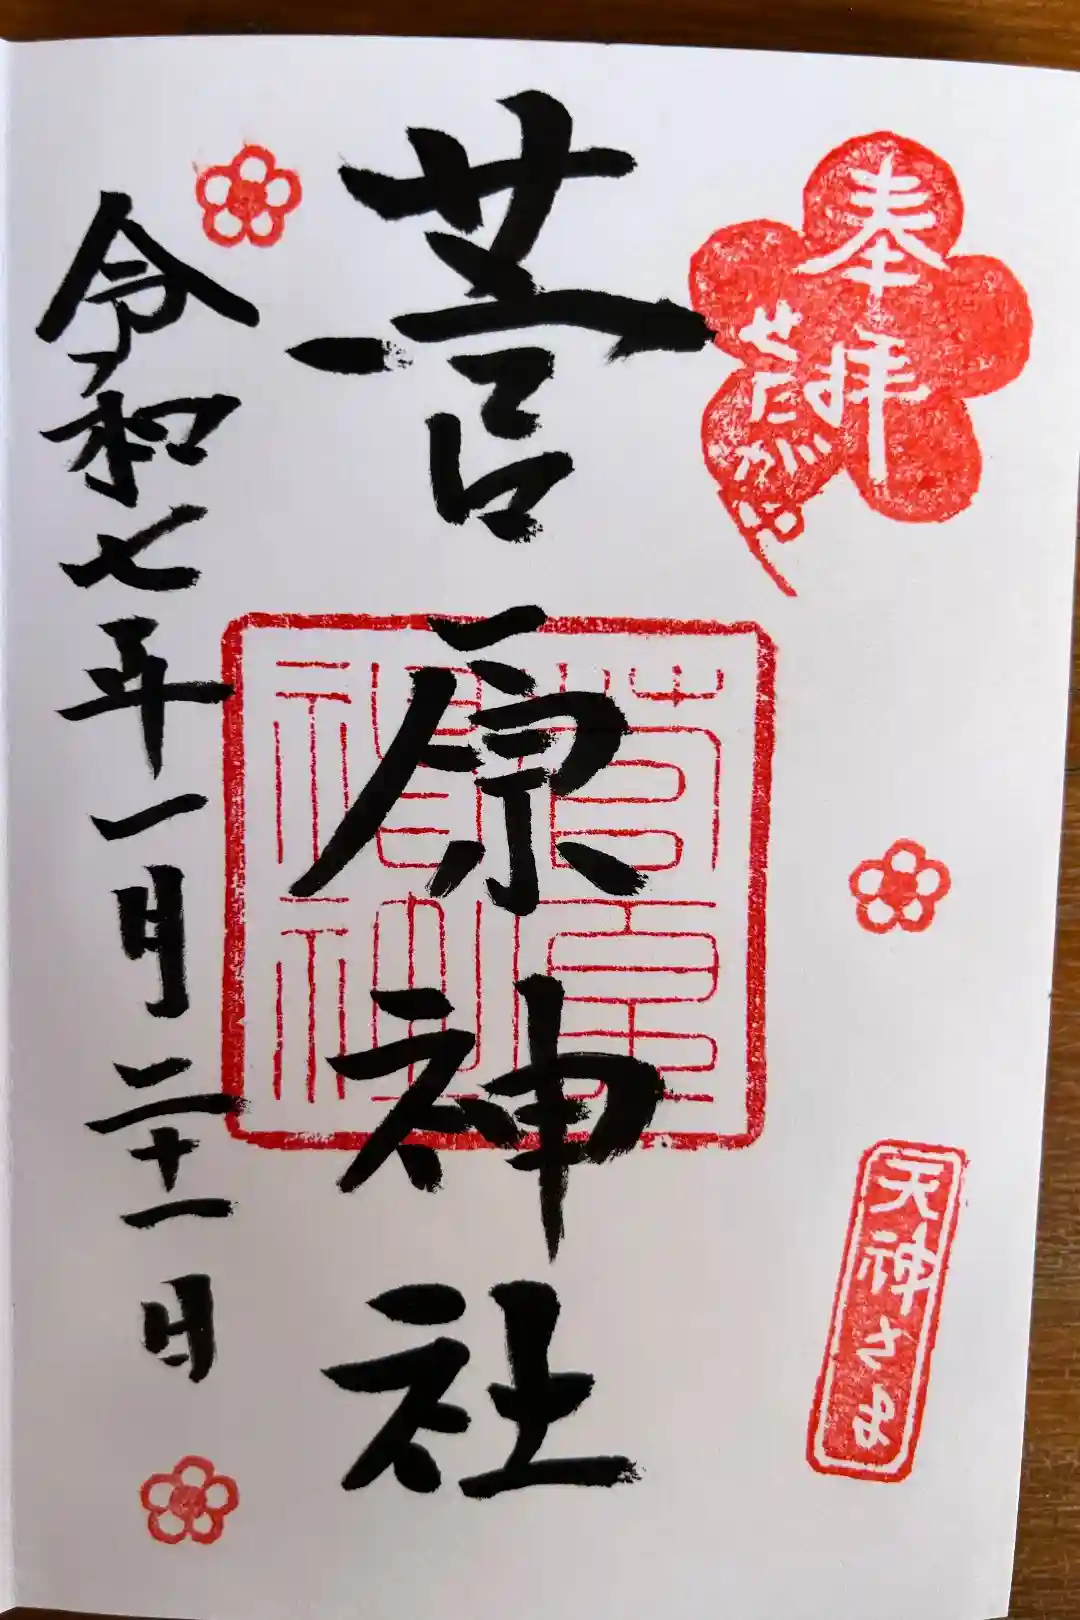 奉拝
せたがや
天神さま
菅原神社
菅原神社
令和七年一月二十一日